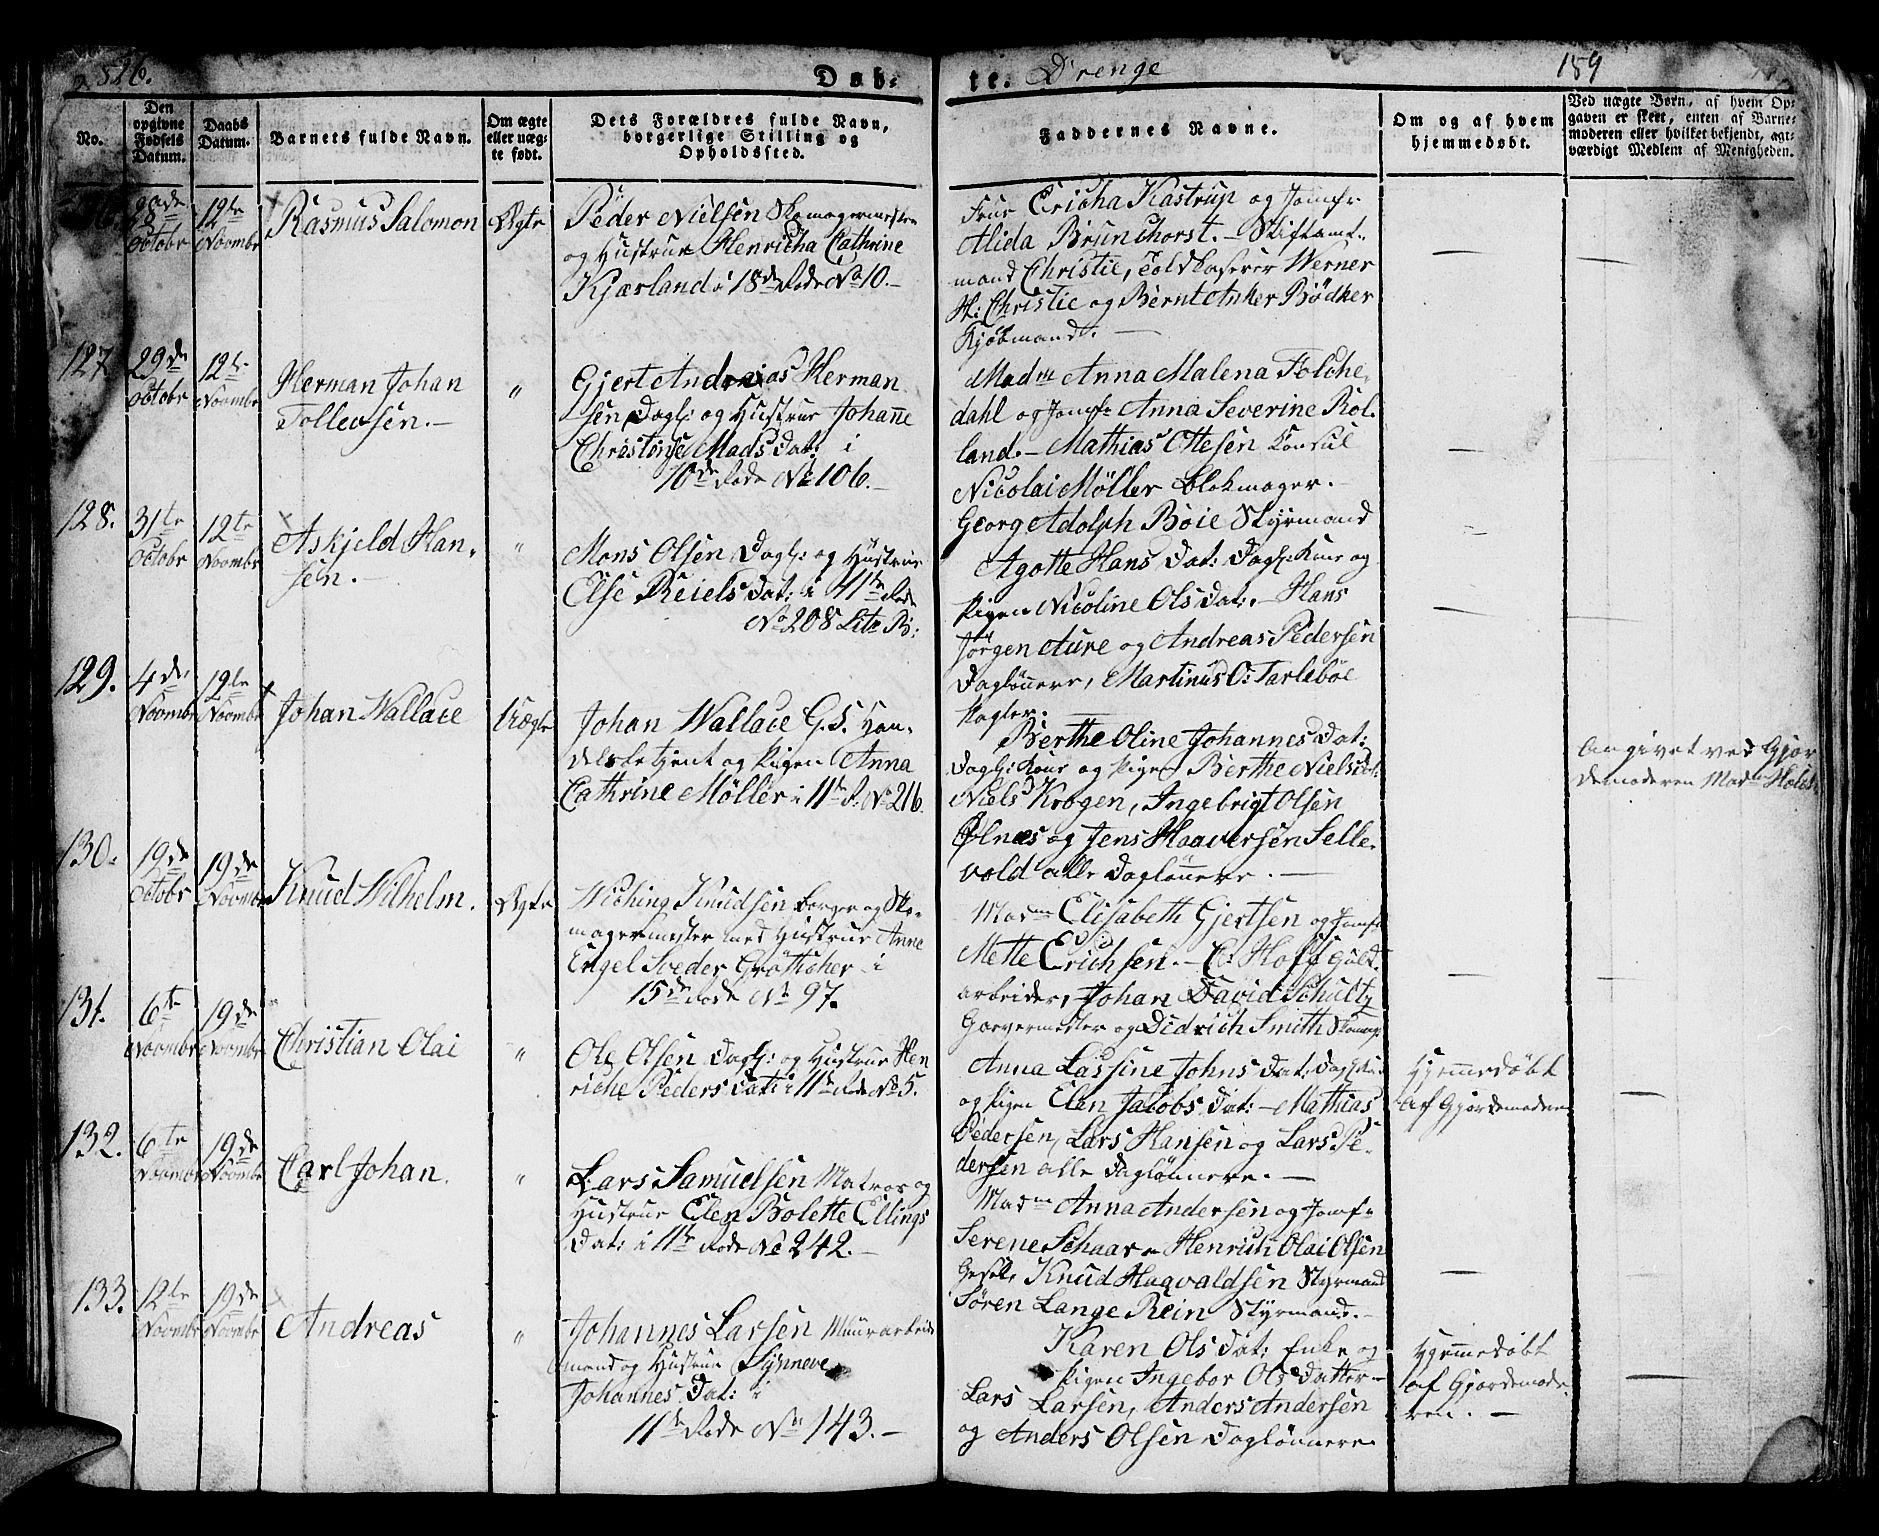 526.
Døb-
te. Drenge
189
No.
Den opgivne Fødsels Datum.
Daabs Datum.
Barnets fulde Navn.
Om ægte eller uægte født.
Dets Forældres fulde Navn, borgerlige Stilling og Opholdssted.
Faddernes Navne.
Om og af hvem hjemmedøbt.
Ved uægte Børn, af hvem Opgaven er skeet, enten af Barnemoderen eller hvilket bekjendt, agtværdigt Medlem af Menigheden.
28de Octobr
12te Novmbr
Rasmus Salomon
Ægte
Peder Nielsen Skomagermester
og Hustrue Henricha Cathrine
Kjærland i 18de Rode No 10.
Frue Ericha Kastrup og Jomfr
Alida Brunchorst. - Stiftamt-
mand Christie, Toldkaserer Werner
H: Christie og Bernt Anker Bödker
Kjöbmand.
127.
29de Octobr
12te Novmbr
Herman Johan
Tollevsen.
"
Gjert Andreas Herman
sen Dagl: og Hustrue Johanne
Christense Mads Dat: i
10de Rode No 106.
Madm Anna Malena Folche-
dahl og Jomfr Anna Severine Rol-
land. - Mathias Ottesen Konsul
Nicolai Möller Blokmager.
128.
31te Octobr
12te Novmbr
Askjeld Han-
sen.
"
Mons Olsen Dagl: og Hustrue
Else Reiels Dat: i 11te Rode
No 208 Litr B:
Georg Adolph Böie Styrmand
Agotte Hans Dat: Dagl: Kone og
Pigen Nicoline Ols Dat: - Hans
Jörgen Aure og Andreas Pedersen
Daglönnere, Martinus O: Tarleböe
129.
4de Novmbr
12te Novmbr
Johan Wallace
Uægte
Johan Wallace G. S. Han-
delsbetjent og Pigen Anna
Cathrine Möller i 11te R. No 216.
Berthe Oline Johannes Dat:
Dagl: Kone og Pigen Berthe Niels Dat:
Niels Krogen, Ingebrigt Olsen
Ølnæs og Jens Haaversen Selle-
vold alle Daglönnere.
Angivet ved Gjor
demoderen Madm
130.
19de Octobr
19de Novmbr
Knud Wilhelm.
Ægte
Wiching Knudsen Borger og Sko-
magermester med Hustrue Anne
Engel Soeder Gröttcher i
15de Rode No 97.
Madme Elisabeth Gjertsen og Jomfr
Mette Erichsen. - C. Hoff Guld-
arbeider, Johan David Schultz
Garvermester og Didrich Smith Skomag:
131.
6te Novmbr
19de Novmbr
Christian Olai
"
Ole Olsen Dagl: og Hustrue Hen
riche Peders Dat: i 11te Rode No 5.
Anna Lassine Johns Dat: Dagl: Kone
og Pigen Elen Jacobs Dat: - Mathias
Pedersen, Lars Hansen og Lars Pe-
dersen alle Daglönnere.
Hjemmedöbt
af Gjordemoderen
132.
6te Novmbr
19de Novmbr
Carl Johan.
"
Lars Samuelsen Matros og
Hustrue Elen Bolette Ellings
Dat: i 11te Rode No 242.
Madme Anna Andersen og Jomfr
Serene Schaar - Henrich Olai Olsen
Gesel, Knud Hagvaldsen Styrmand
Sören Lange Rein Styrmand.
133.
12te Novmbr
19de Novmbr
Andreas
"
Johannes Larsen Muurarbeids
mand og Hustrue Synneve
Johannes Dat: i
11te Rode No 143.
Karen Ols Dat: Enke og
Pigen Ingebor Ols Datter -
Lars Larsen, Anders Andersen
og Anders Olsen Daglönnere
Hjemmedöbt
af Gjordemode-
ren.